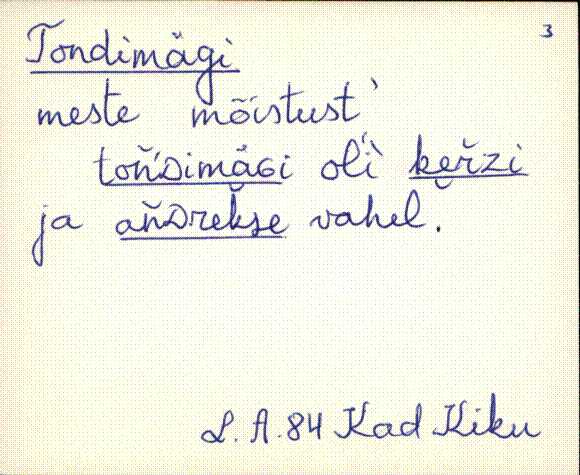 3
Tondimägi
meste mõistust'
tońᴅimäɢi oĺi keřzi
ja ańᴅrekse vahel.
L. A. 84 Kad Kiku